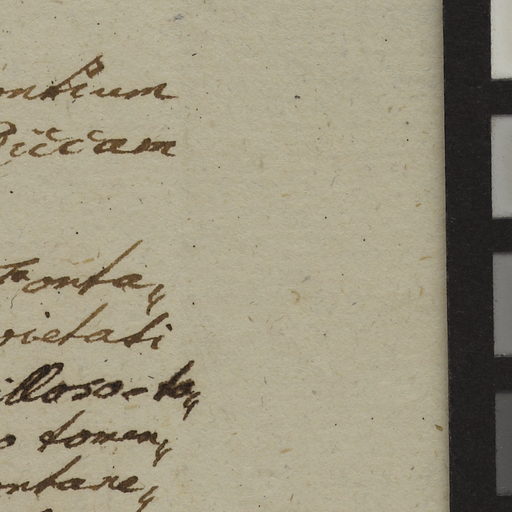 ontium
Siccam
monta„
arietati
illoso-to„
o tomen„
ontane„